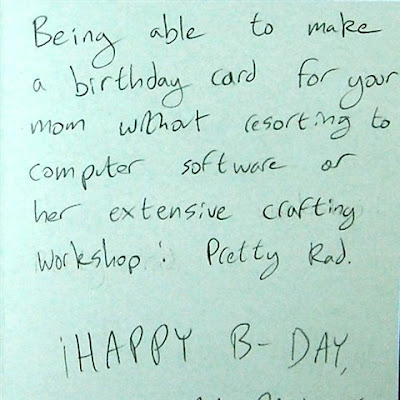 Being able to make
a birthday card for your
mom without resorting to
computer software or
her extensive crafting
workshop: Pretty Rad.
¡HAPPY B-DAY,